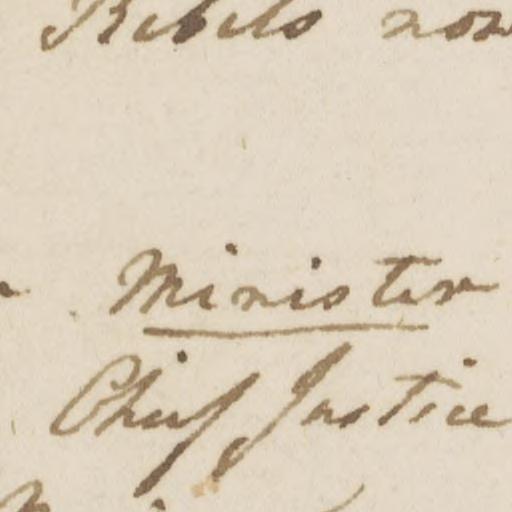 Rebels now
Minister
Chief Justice